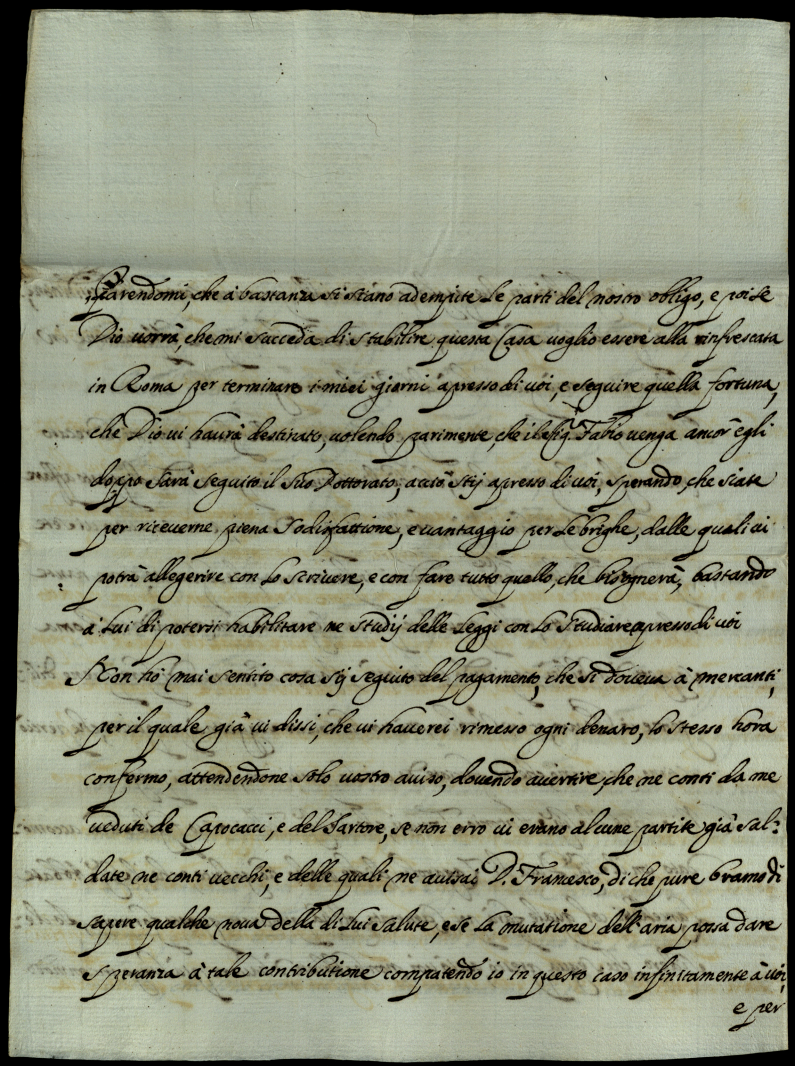 Parendomi, che à bastanza si siano adempite le parti del nostro obligo, e poi se
Dio vorrà, che mi succeda di stabilire questa Casa voglio essere alla rinfrescata
in Roma per terminare i miei giorni apresso di voi, e seguire quella fortuna,
che Dio vi haurà destinato, volendo parimente, che il Sig.r Fabio venga ancor egli
doppo sarà seguito il suo Dottorato, acciò stij apresso di voi, sperando, che siate
per riceverne piena sodisfattione, e vantaggio per le brighe, dalle quali vi
potrà allegerire con lo scrivere, e con fare tutto quello, che bisognerà, bastando
à lui di potersi habilitare ne studij delle leggi con lo studiare apresso di voi
Non hò mai sentito cosa sij seguito del pagamento, che si doveva à mercanti,
per il quale già vi dissi, che vi haverei rimesso ogni denaro, lo stesso hora
confermo, attendendone solo vostro aviso, dovendo avertire, che ne conti da me
veduti de Capocacci, e del Sartore, se non erro vi erano alcune partite già sal:
date ne conti vecchi, e delle quali ne avisai D. Francesco, di che pure bramo di
sapere qualche nova della di lui salute, e se la mutatione dell'aria possa dare
speranza à tale contributione compatendo io in questo caso infinitamente à voi,
e per